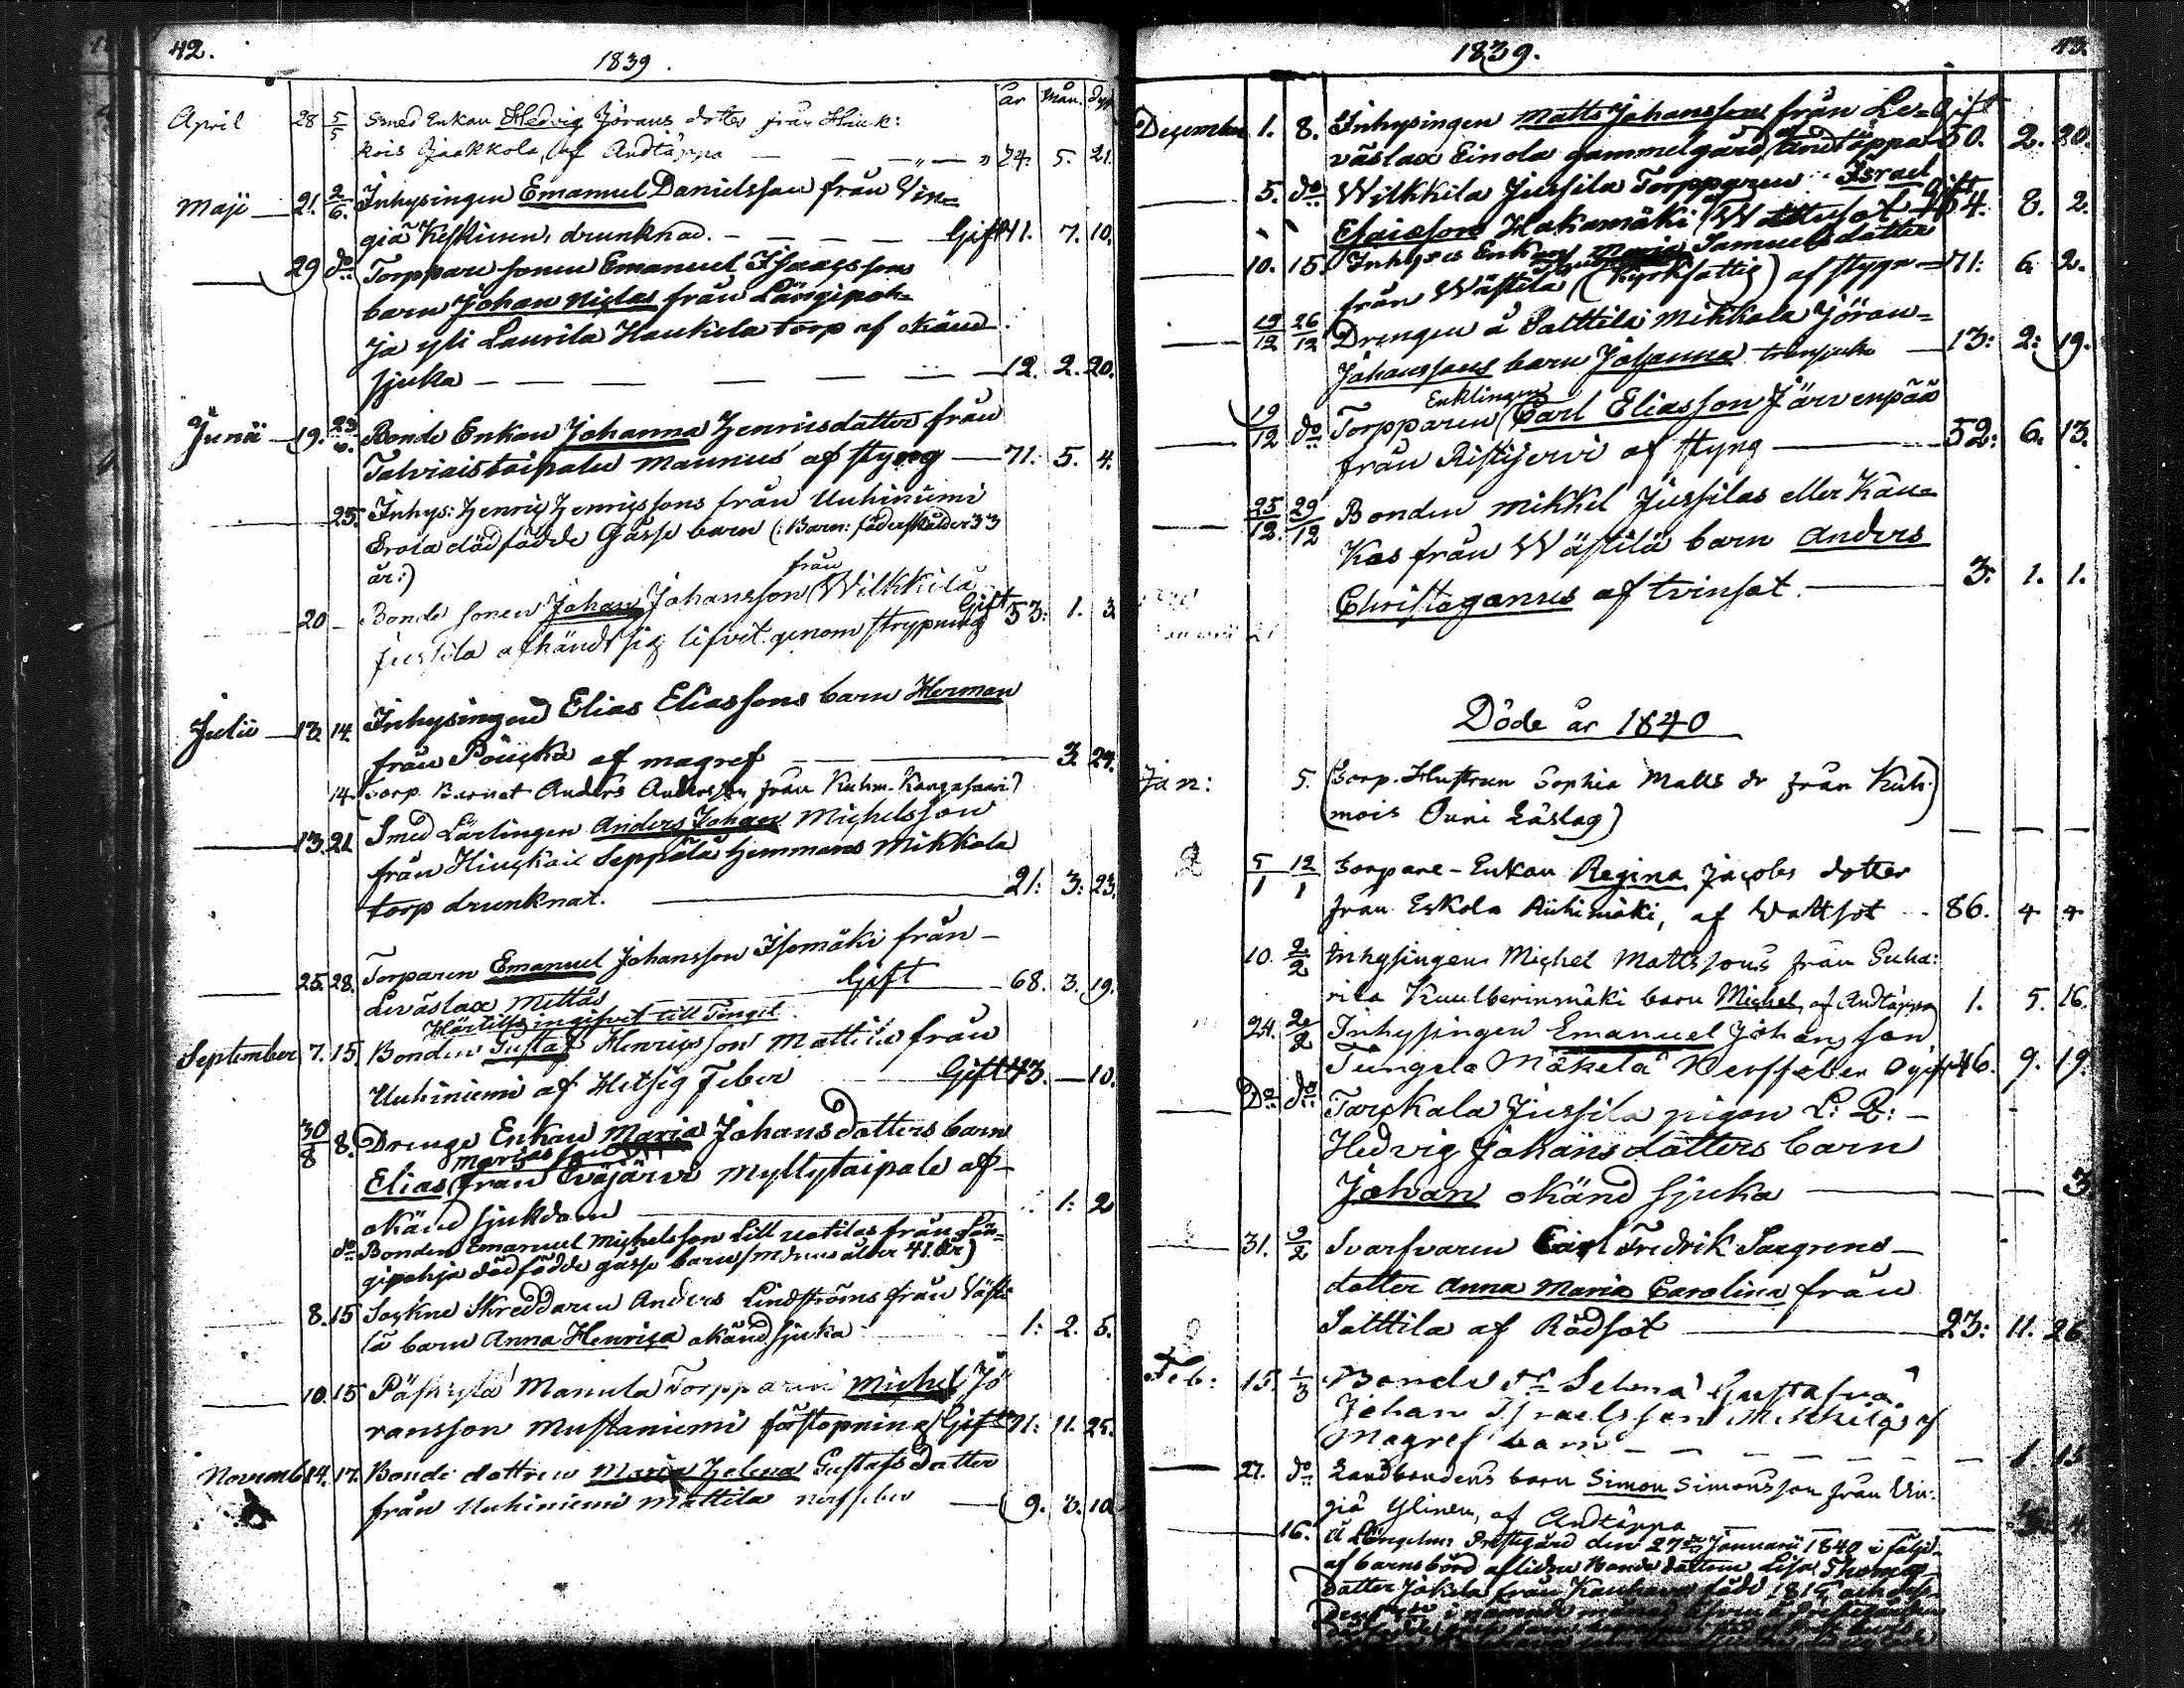 42.
1839.
år Mån. dyg
April 28 5/5 Smed Enkan Hedvig Jörans dotter från Hiuk:
kois Jaakkola, af Andtäppa — — — „ — „ 74. 5. 21.
Maji 21. 2/6. Inhysingen Emanuel Danielsson från Vin=
giä Keskinen, drunknad. — — — — Gift 41. 7. 10.
29 do Torppare sonen Emanuel Isaacssons
barn Johan Niclas från Längipoh=
ja yli Laurila Haukela torp af okänd
sjuka — — — — — 12. 2. 20.
Junii 19. 23/6. Bonde Enkan Johanna Henricsdotter från
Talviaistaipale Maunus af styng — 71. 5. 4.
25. Inhys: Henric Henricssons från Uuhiniemi
Erola dödfödde Gosse barn (: Barn: föderskålder 33
år:)
20 — Bonde sonen Johan Johansson från Wilkkilä
Jussila afhändt sig lifvet genom strypning Gift 53: 1. 3.
Julii 13. 14. Inhysingen Elias Eliassons barn Herman
från Pouckä af magref — 3. 24.
14. Torp. Barnet Anders Andersson från Kuhm. Kangasaari)
13. 21. Smed Lärlingen Anders Johan Michelsson
från Hiuckais Seppälä hemmans Mikkola
torp drunknat. — 21: 3: 23.
25. 28. Torparen Emanuel Johansson Isomäki från —
Leväslax Mittäs Gift — 68. 3. 19.
Härtills ingifvit till Tingst.
September 7. 15. Bonden Gustaf Henricsson Mattila från
Uuhiniemi af Hetsig Feber Gift 43. — 10.
30/8 8. Drenge Enkan Maria Johansdotters barn
Elias från Eväjärvi Myllytaipale af
okänd sjukdom — 1: 2
do Bonden Emanuel Michelsson Lill uotilas från Län=
gipohja dödfödde gosse barn (modrens ålder 41. år)
8. 15 Sockne Skreddaren Anders Lindströms från Västi
lä barn Anna Henrica okänd sjuka 1: 2. 5.
10. 15. Manula Torpparen Michel Jö
ransson Mustaniemi förstopning Gift 71: 11. 25.
Novemb 14. 17. Bonde dottren Maria Helena Gustafsdotter
från Uuhiniemi Mattila nerffeber — 9. 8. 10
1839. 43.
December 1. 8. Inhysingen Matts Johansson från Le=
väslax Einola gammelgård, af Andtäppa Gift 50. 2. 20.
5. do Wilkkila Jussila Torpparen Israel
Esaiasson Hakamäki af Wattusot Gift 54. 8. 2.
10. 15. Inhyses Enkan Maria Samuelsdotter
från Wästilä (Kyrkfattig) af styng — 71: 6. 2.
19/12 26/12 Drengen å Salttila Mikkola Jöran=
Johanssons barn Johanna — 13: 2: 19.
Enklingen
19/12 do Torpparen Carl Eliasson Järvenpää
från Ristijervi af styng — 52: 6. 13.
25/12. 29/12 Bonden Mikkel Jussilas eller Kau=
Kas från Wästilä barn Anders
Christoganus af tvinsot. — 3: 1. 1.
Döde år 1840
Jan: 5. (Torp. Hustrun Sophia Matts dr från Kuh.
mois Ouni Läslag) — — —
5/1 12/1 Torpare-Enkan Regina Jacobs dotter
fran Eskola Riihimäki, af Wattsot — 86. 4. 4.
10. 2/2 Inhysingen Michel Mattssons från Euha:
rita barn Michel af Andtäppa 1. 5. 16.
24. 2/2 Inhysingen Emanuel Johansson
Tungela Mäkelä Nerffeber Ogift 46. 9. 19.
Do do Torckala Jussila pigan L: Q: —
Hedvig Johansdotters barn
Johan okänd sjuka — — — 3.
31. 9/2 Svarfvaren Carl Fredrik Saxgrens —
dotter Anna Maria Carolina från
Salttila af Rödsot — 23: 11. 26
Feb: 15. 1/3 Bonde dr Selma Gustafva
Johan Israelsson
Magref barn — — — 1. 15
27. do Landbondens barn Simon Simonsson från Vin:
giä Ylinen, af Andtäppa
16. å Längelmä Prestgård den 27de Januarii 1840 i följd
af barnsbörd aflidne Bonde dottren Lisa Thomas
dotter Jokela från